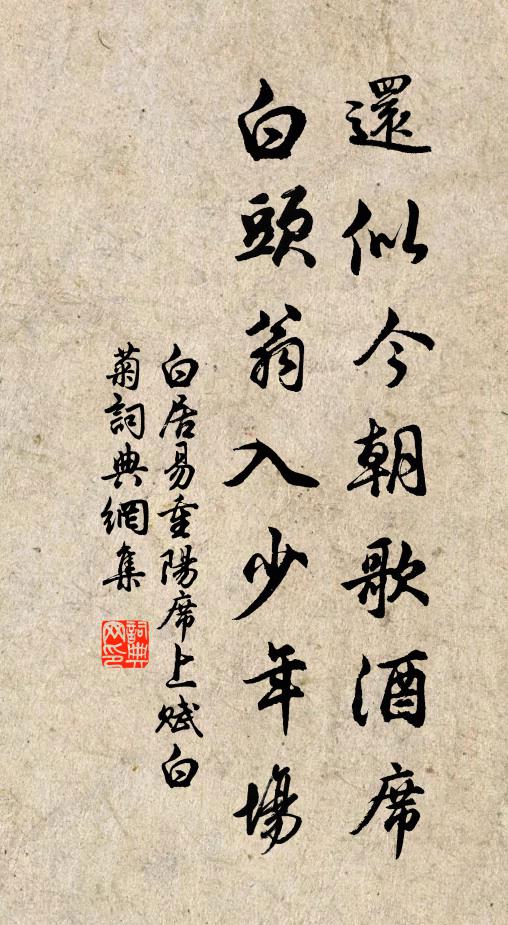 還似今朝歌酒席
白頭翁入少年場
白居易重陽席上賦白
菊詞典網集
詞典网印